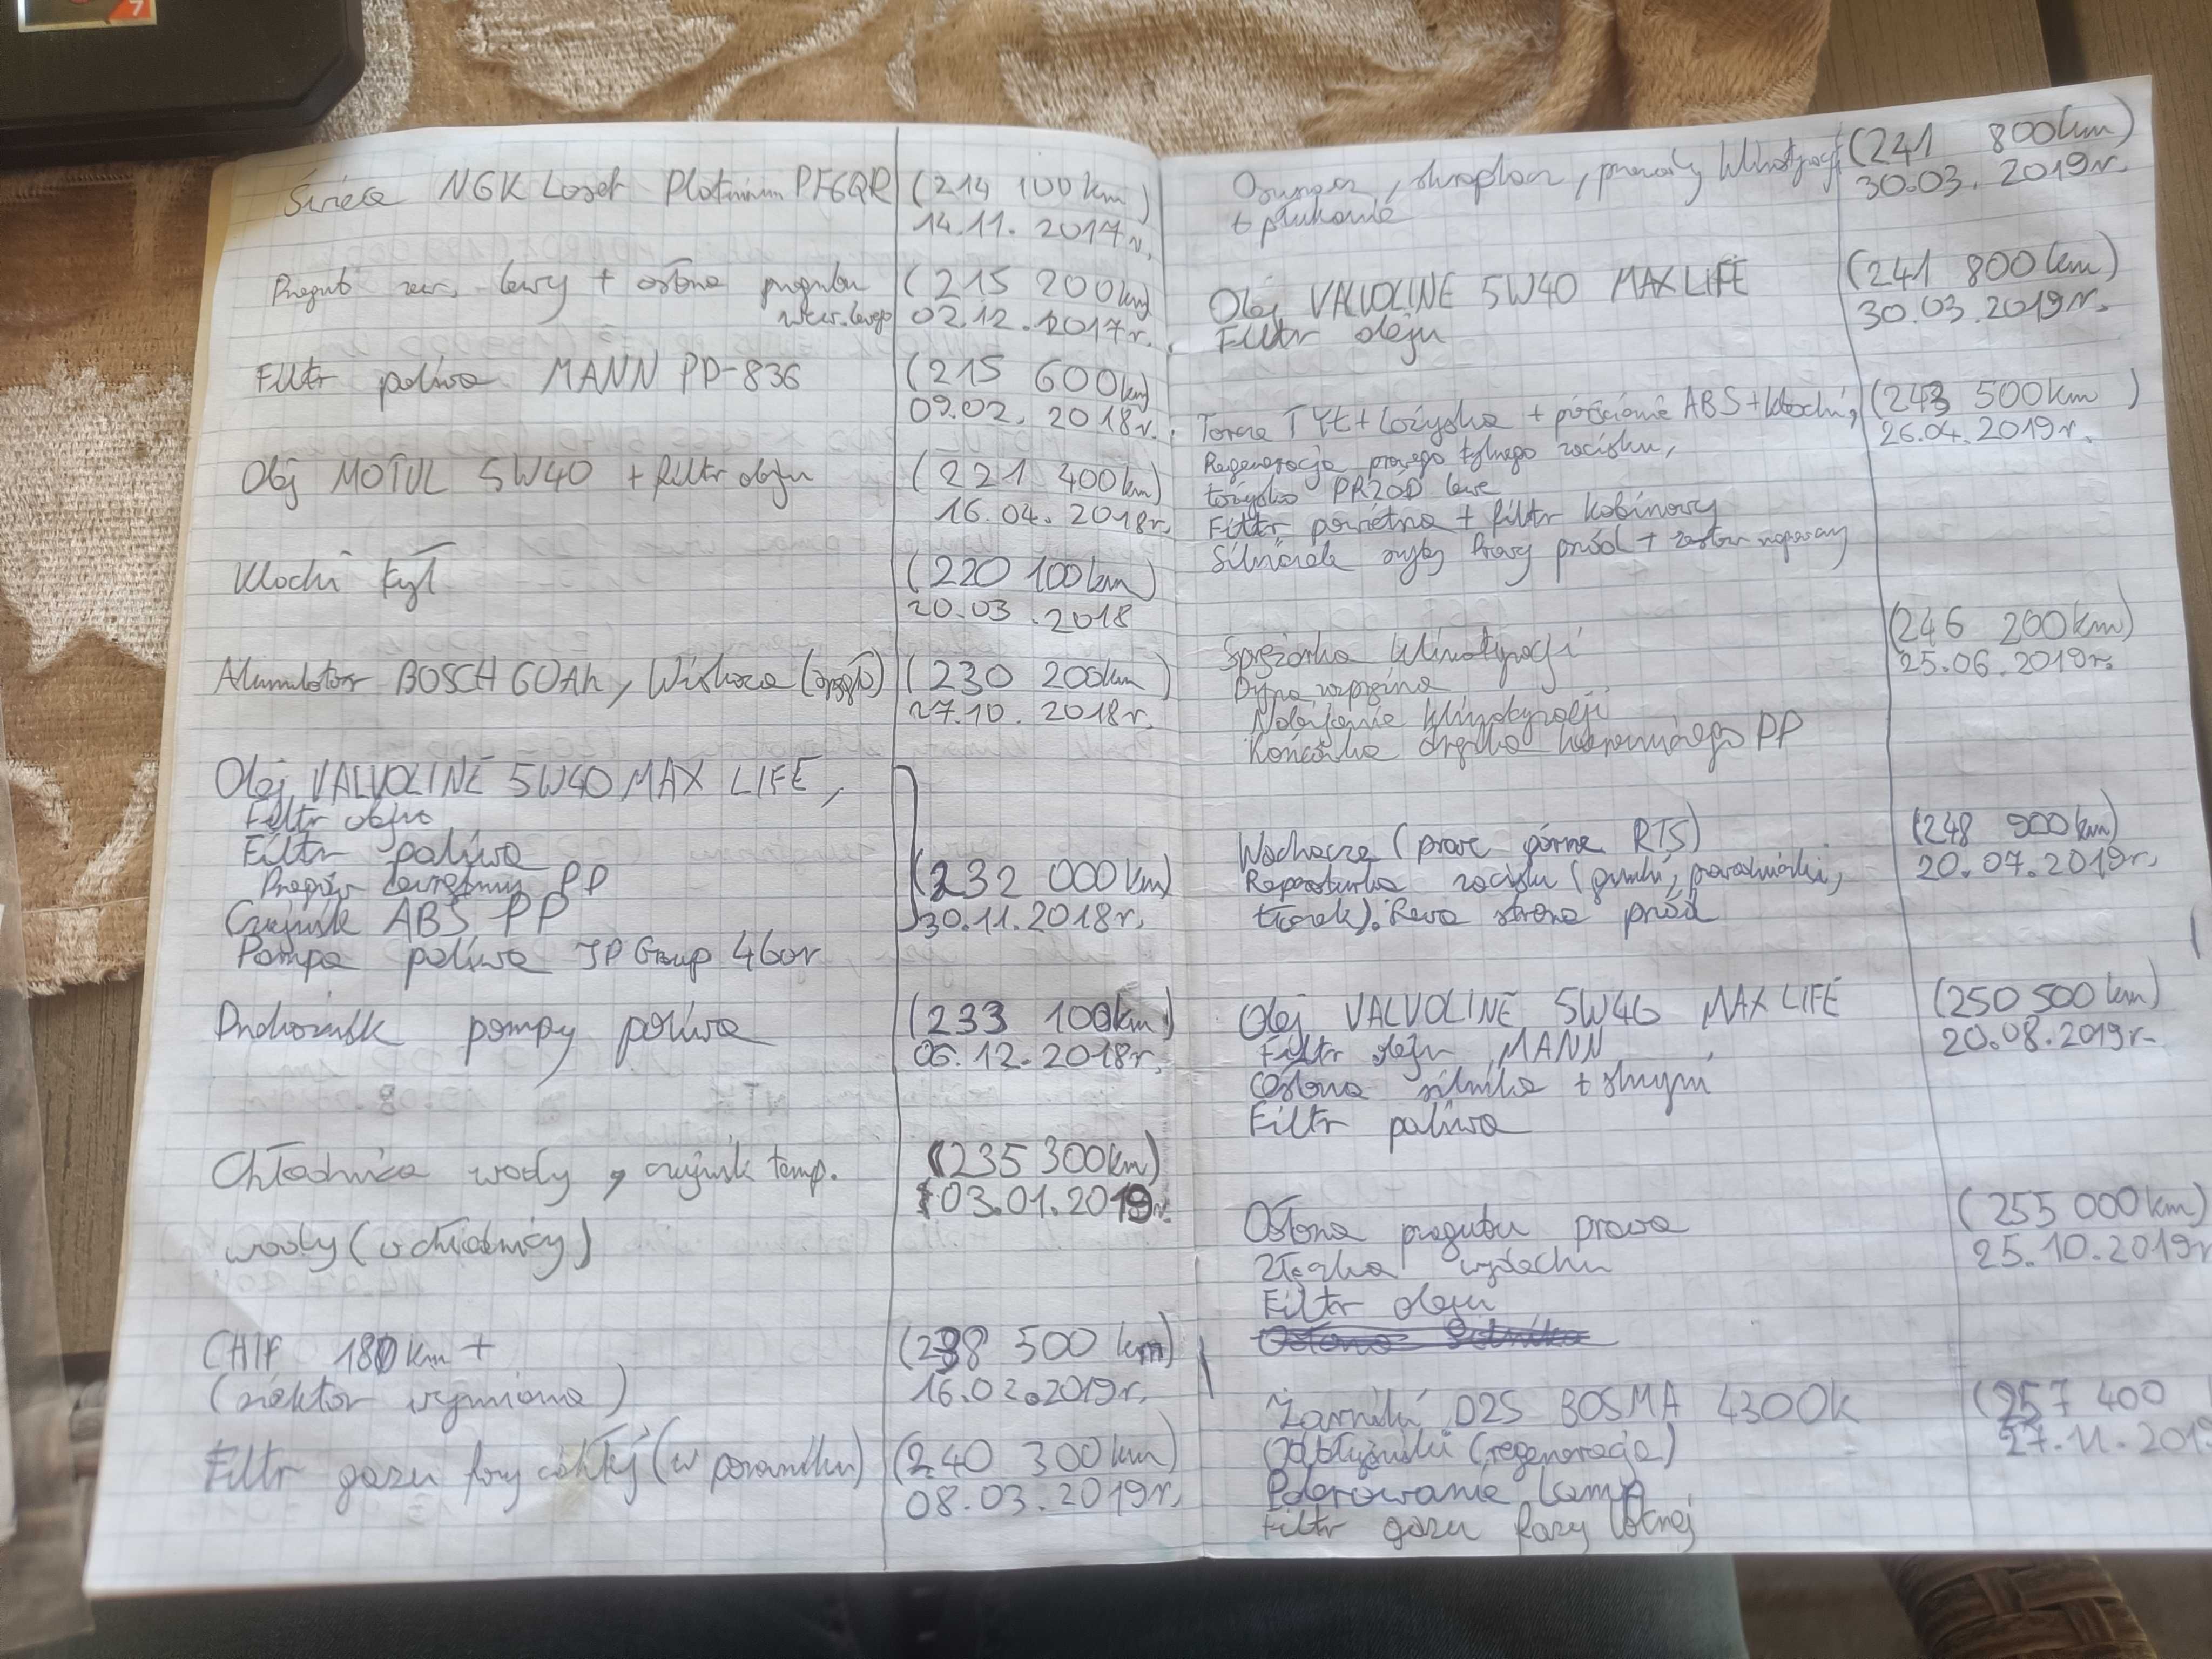 Świece NGK Laser Platinium PF6QR (214 100km)
14.11.2017r.
Przegub zew. lewy + osłona przegubu (215 200km)
wew. lewego 02.12.2017r.
Filtr paliwa MANN PP-836 (215 600km)
09.02.2018r.
Olej MOTUL 5W40 + filtr oleju (221 400km)
16.04.2018r.
Klocki tył (220 100km)
20.03.2018
Akumulator BOSCH 60Ah, Wiskoza (230 200km)
27.10.2018r.
Olej VALVOLINE 5W40 MAX LIFE,
Filtr oleju
Filtr paliwa
Przegub zewnętrzny PP (232 000km)
Czujnik ABS PP 30.11.2018r.
Pompa paliwa JP Group 4bar
Przekaźnik pompy paliwa (233 100km)
06.12.2018r.
Chłodnica wody, czujnik temp. (235 300km)
03.01.2019r.
wody (w chłodnicy)
CHIP 180km + (238 500 km)
(reaktor wymiana) 16.02.2019r.
Filtr gazu fazy ciekłej (w parowniku) (240 300km)
08.03.2019r.
Osuszacz, skraplacz, przewody klimatyzacji (241 800km)
+ płukanie 30.03.2019r.
Olej VALVOLINE 5W40 MAX LIFE (241 800km)
Filtr oleju 30.03.2019r.
Tarcze TYŁ + łożyska + pierścienie ABS + klocki, (243 500km)
Regeneracja prawego tylnego zacisku, 26.04.2019r.
Łożysko PRZÓD lewe
Filtr powietrza + filtr kabinowy
Silniczek szyby Prawy przód + zestaw naprawczy
Sprężarka klimatyzacji (246 200km)
25.06.2019r.
Nabijanie klimatyzacji
Końcówka drążka kierowniczego PP
Wahacze (prawe górne RTS) (248 900km)
Reperaturka zacisku (gumki, prowadniki, 20.07.2019r.
tłoczek). Lewa strona przód
Olej VALVOLINE 5W40 MAX LIFE (250 500km)
Filtr oleju MANN 20.08.2019r.
Osłona silnika + skrzyni
Filtr paliwa
Osłona przegubu prawa (255 000km)
Złączka wydechu 25.10.2019r
Filtr oleju
Osłona Silnika
Żarniki D2S BOSMA 4300k (257 400
Odbłyśniki (regeneracja) 27.11.201
Polerowanie lamp
Filtr gazu fazy lotnej